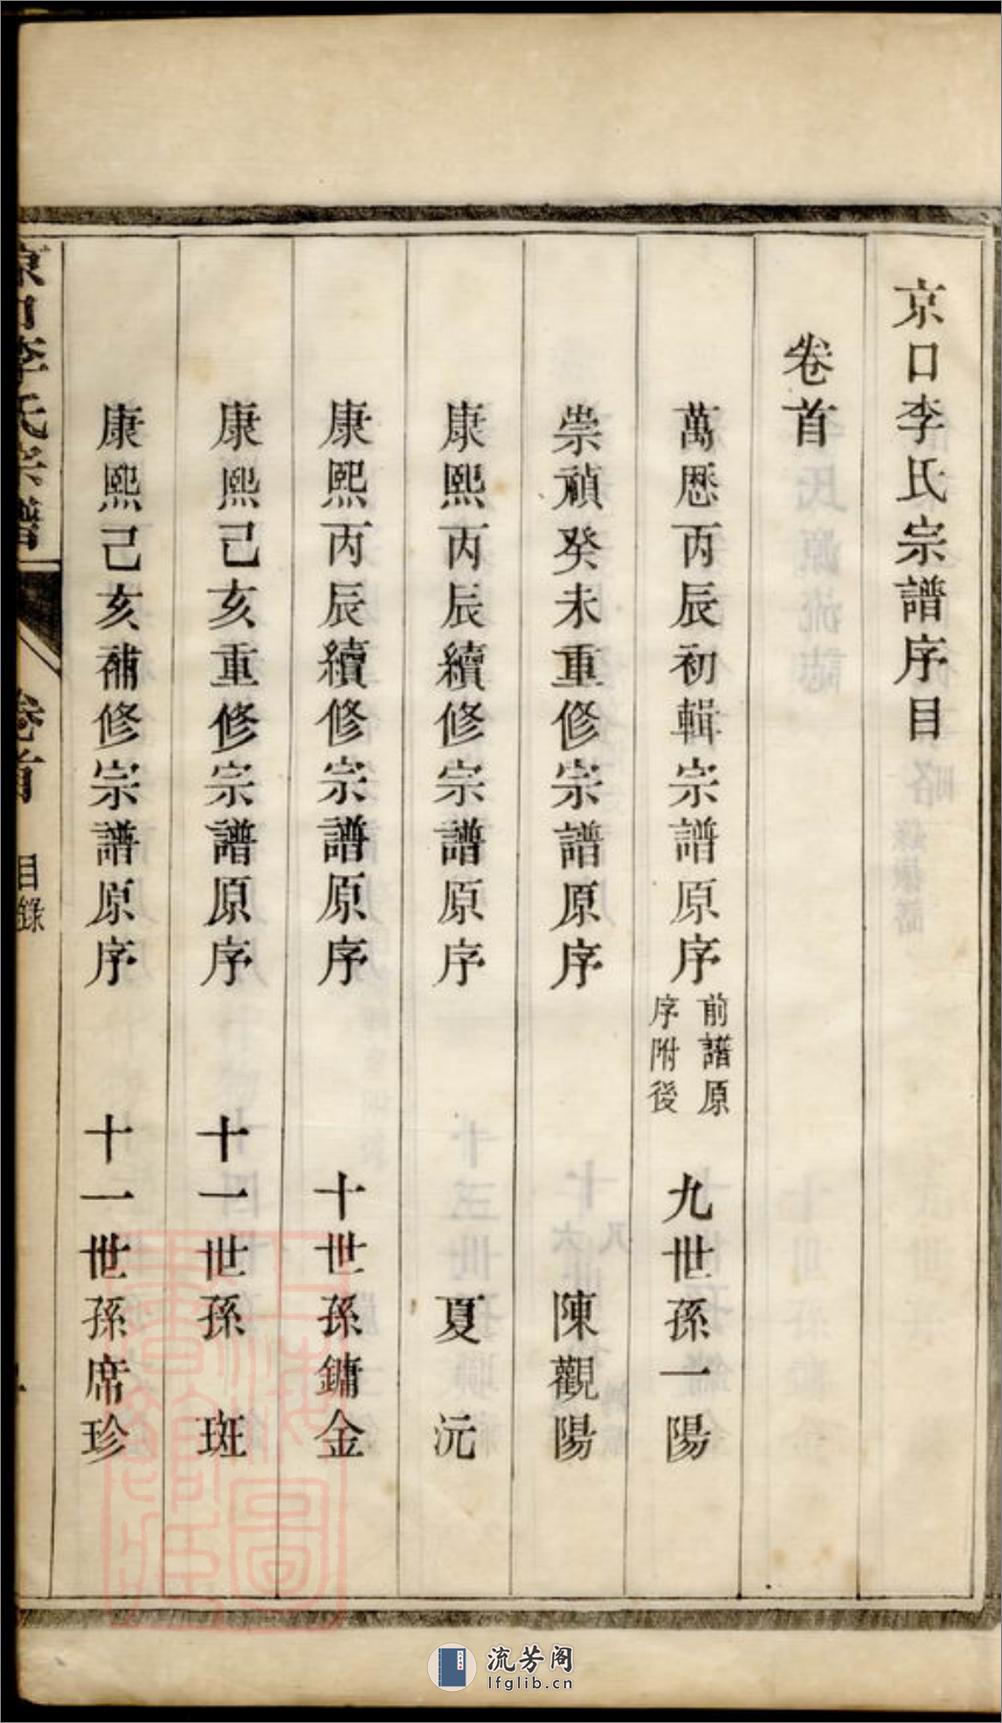 京口李氏宗譜序目
卷首
萬厯丙辰初輯宗譜原序 前譜原序附後 九世孫一陽
崇禎癸未重修宗譜原序 陳觀陽
康熙丙辰續修宗譜原序 夏沅
康熙丙辰續修宗譜原序 十世孫鏞金
康熙己亥重修宗譜原序 十一世孫 斑
康熙己亥補修宗譜原序 十一世孫席珍
京口李氏宗譜 卷首 目錄
流芳阁
lfglib.cn